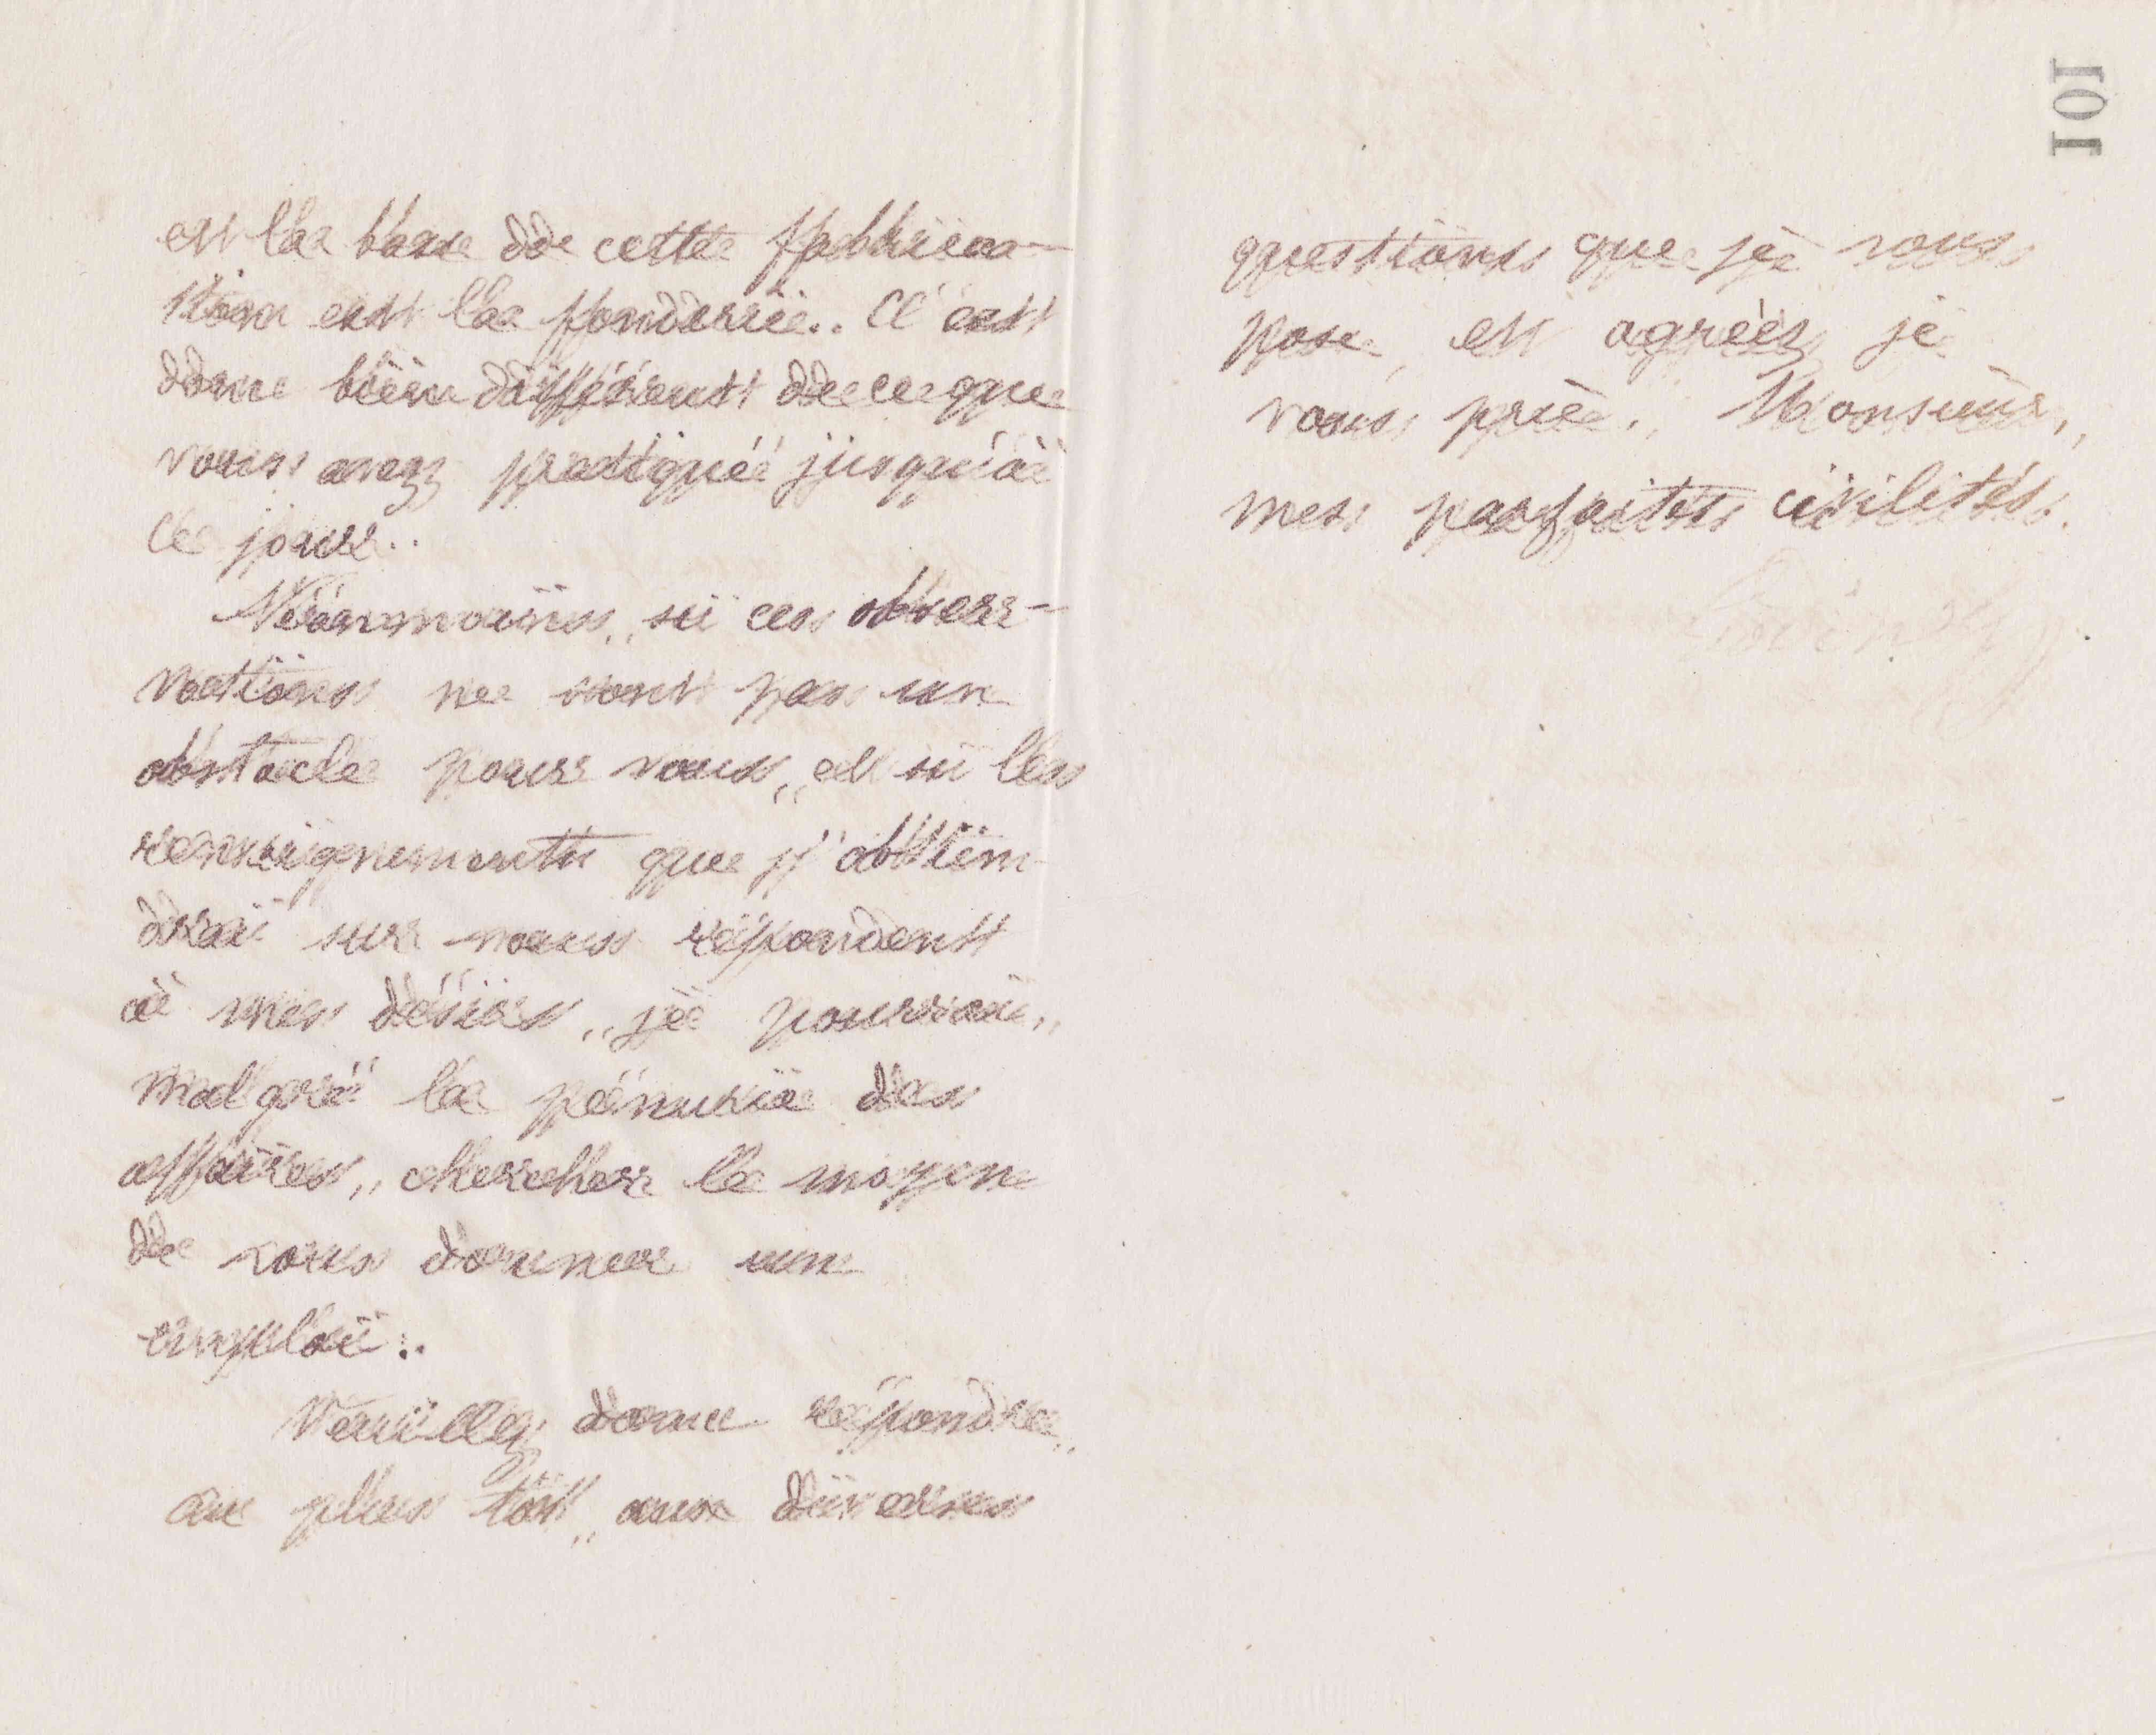 et la base de cette fabrica-
tion est la fonderie. C'est
donc bien différent de ce que
vous avez pratiqué jusqu'à
ce jour.
Néanmoins, si ces obser-
vations ne sont pas un
obstacle pour vous, et si les
renseignements que j'obtien-
drai sur vous répondent
à mes désirs, je pourrai,
malgré la pénurie des
affaires, chercher le moyen
de vous donner un
emploi.
Veuillez donc répondre,
au plus tôt, aux diverses
101
questions que je vous
pose, et agréez je
vous prie, Monsieur,
mes parfaites civilités.